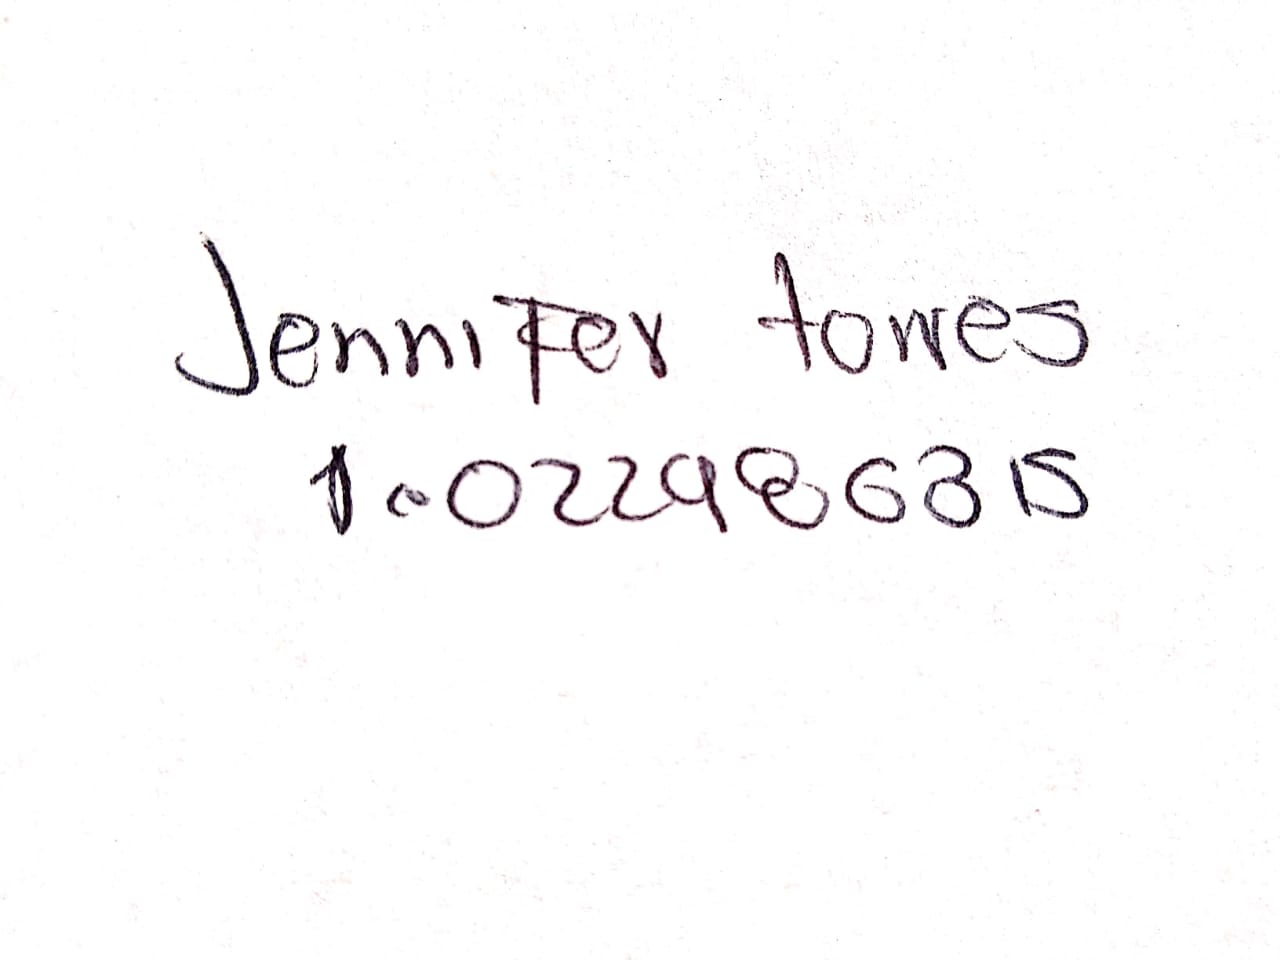 Jennifer torres
1.022986315